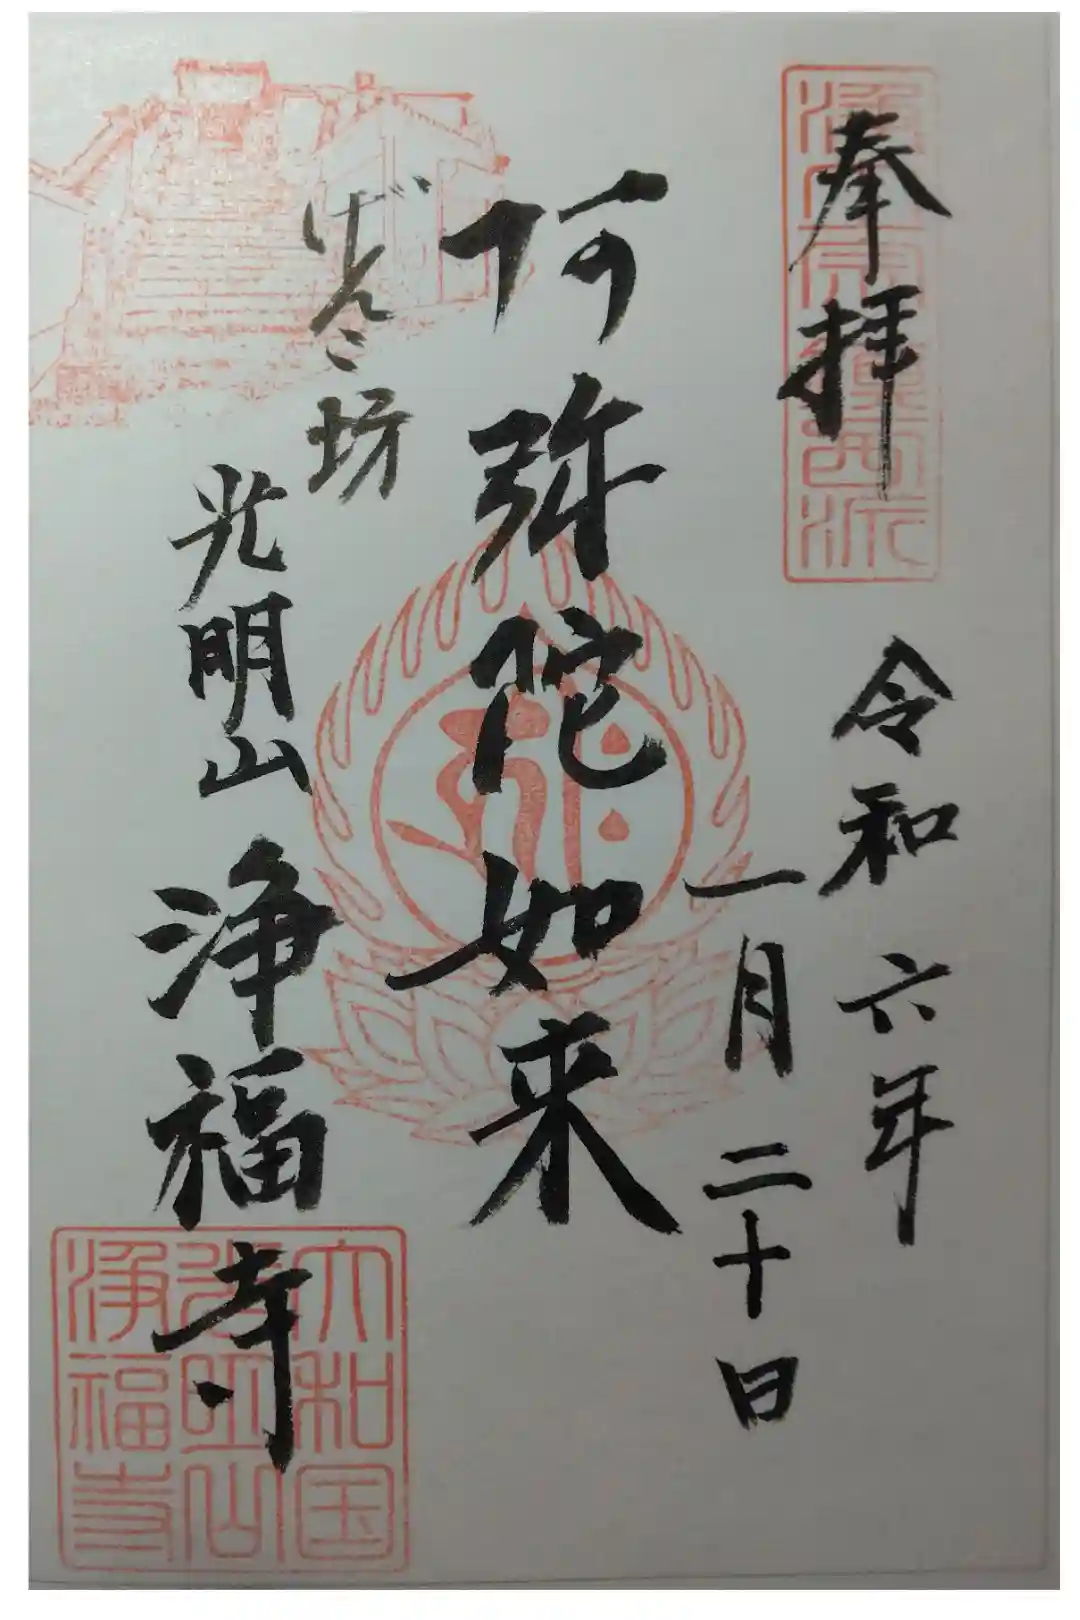 奉拝
令和六年
一月二十日
阿弥陀如来
ぜんこ坊
光明山 浄福寺
大和国
光明山
浄福寺